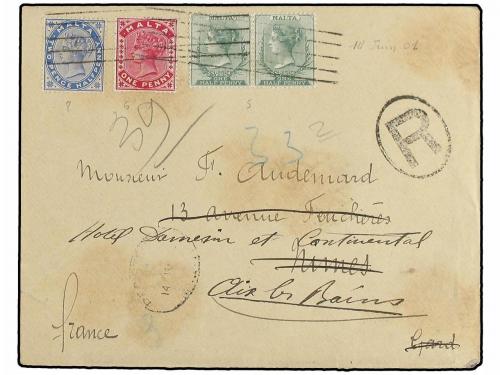 MALTA
TWO PENCE HALFPENNY
MALTA
ONE PENNY
MALTA
HALF PENNY
MALTA
HALF PENNY
5
2
33
R
Monsieur F. Audemard
13 avenue Feuchères
Hotel Damesin et Continental
Nimes
Aix les Bains
14
France
Gard